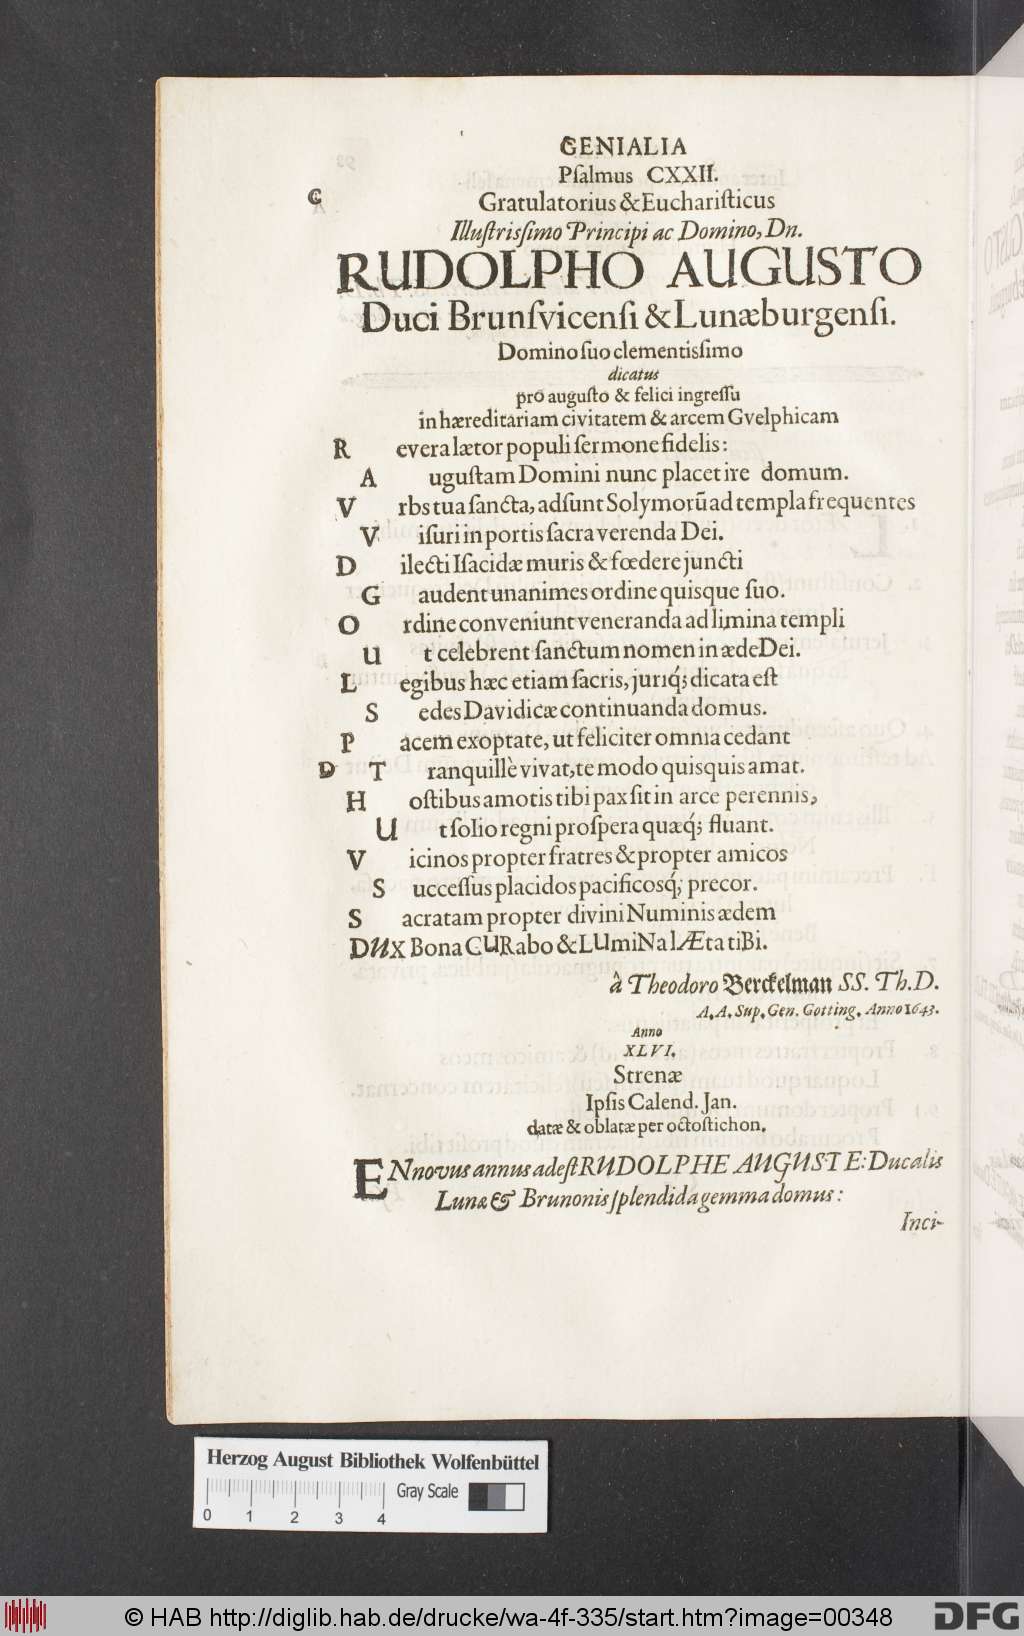 GENIALIA
Pſalmus CXXII.
C
Gratulatorius & Euchariſticus
Illuſtrisſimo Principi ac Domino, Dn.
RUDOLPHO AUGUSTO
Duci Brunſvicenſi & Lunæburgenſi.
Domino ſuo clementisſimo
dicatus
pro auguſto & felici ingreſſu
in hæreditariam civitatem & arcem Gvelphicam
R evera lætor populi ſermone fidelis:
A uguſtam Domini nunc placet ire domum.
V rbs tua ſancta, adſunt Solymorũ ad templa frequentes
V iſuri in portis ſacra verenda Dei.
D ilecti Iſacidæ muris & fœdere juncti
G audent unanimes ordine quisque ſuo.
O rdine conveniunt veneranda ad limina templi
U t celebrent ſanctum nomen in æde Dei.
L egibus hæc etiam ſacris, juriq́; dicata eſt
S edes Davidicæ continuanda domus.
P acem exoptate, ut feliciter omnia cedant
D T ranquillè vivat, te modo quisquis amat.
H oſtibus amotis tibi pax ſit in arce perennis,
U t ſolio regni proſpera quæq́; fluant.
V icinos propter fratres & propter amicos
S ucceſſus placidos pacificosq́; precor.
S acratam propter divini Numinis ædem
DUX Bona CURabo & LUmiNa lÆta tiBi.
â Theodoro Berckelman SS. Th. D.
A. A. Sup. Gen. Gotting. Anno 1643.
Anno
XLVI.
Strenæ
Ipſis Calend. Jan.
datæ & oblatæ per octoſtichon.
EN novus annus adeſt RUDOLPHE AUGUSTE: Ducalis
Lunæ & Brunonis ſplendida gemma domus:
Inci-
Herzog August Bibliothek Wolfenbüttel
Gray Scale
0 1 2 3 4
© HAB http://diglib.hab.de/drucke/wa-4f-335/start.htm?image=00348
DFG